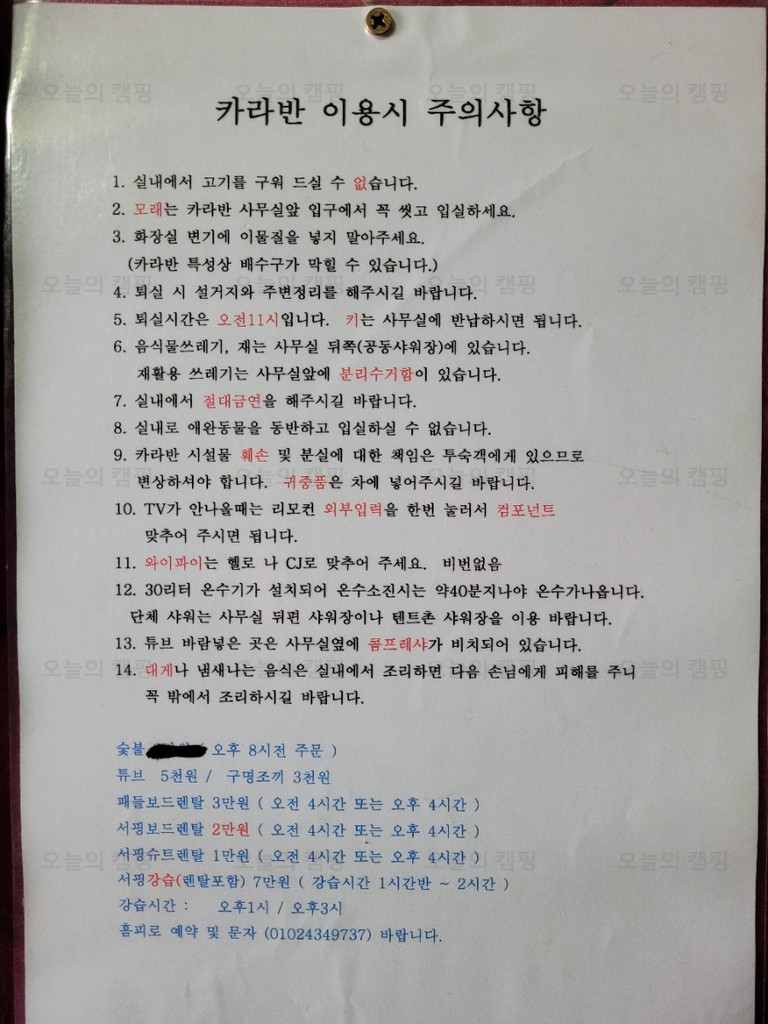 카라반 이용시 주의사항
1. 실내에서 고기를 구워 드실 수 없습니다.
2. 모래는 카라반 사무실앞 입구에서 꼭 씻고 입실하세요.
3. 화장실 변기에 이물질을 넣지 말아주세요.
(카라반 특성상 배수구가 막힐 수 있습니다.)
4. 퇴실 시 설거지와 주변정리를 해주시길 바랍니다.
5. 퇴실시간은 오전11시입니다. 키는 사무실에 반납하시면 됩니다.
6. 음식물쓰레기, 재는 사무실 뒤쪽(공동샤워장)에 있습니다.
재활용 쓰레기는 사무실앞에 분리수거함이 있습니다.
7. 실내에서 절대금연을 해주시길 바랍니다.
8. 실내로 애완동물을 동반하고 입실하실 수 없습니다.
9. 카라반 시설물 훼손 및 분실에 대한 책임은 투숙객에게 있으므로
변상하셔야 합니다. 귀중품은 차에 넣어주시길 바랍니다.
10. TV가 안나올때는 리모컨 외부입력을 한번 눌러서 컴포넌트
맞추어 주시면 됩니다.
11. 와이파이는 헬로 나 CJ로 맞추어 주세요. 비번없음
12. 30리터 온수기가 설치되어 온수소진시는 약40분지나야 온수가나옵니다.
단체 샤워는 사무실 뒤편 샤워장이나 텐트촌 샤워장을 이용 바랍니다.
13. 튜브 바람넣은 곳은 사무실옆에 콤프레샤가 비치되어 있습니다.
14. 대게나 냄새나는 음식은 실내에서 조리하면 다음 손님에게 피해를 주니
꼭 밖에서 조리하시길 바랍니다.
숯불 오후 8시전 주문 )
튜브 5천원 / 구명조끼 3천원
패들보드렌탈 3만원 ( 오전 4시간 또는 오후 4시간 )
서핑보드렌탈 2만원 ( 오전 4시간 또는 오후 4시간 )
서핑슈트렌탈 1만원 ( 오전 4시간 또는 오후 4시간 )
서핑강습(렌탈포함) 7만원 ( 강습시간 1시간반 ~ 2시간 )
강습시간 : 오후1시 / 오후3시
홈피로 예약 및 문자 (01024349737) 바랍니다.
오늘의 캠핑 오늘의 캠핑 오늘의 캠핑 오늘의 캠핑
오늘의 캠핑 오늘의 캠핑 오늘의 캠핑 오늘의 캠핑
오늘의 캠핑 오늘의 캠핑 오늘의 캠핑 오늘의 캠핑
오늘의 캠핑 오늘의 캠핑 오늘의 캠핑 오늘의 캠핑
오늘의 캠핑 오늘의 캠핑 오늘의 캠핑 오늘의 캠핑